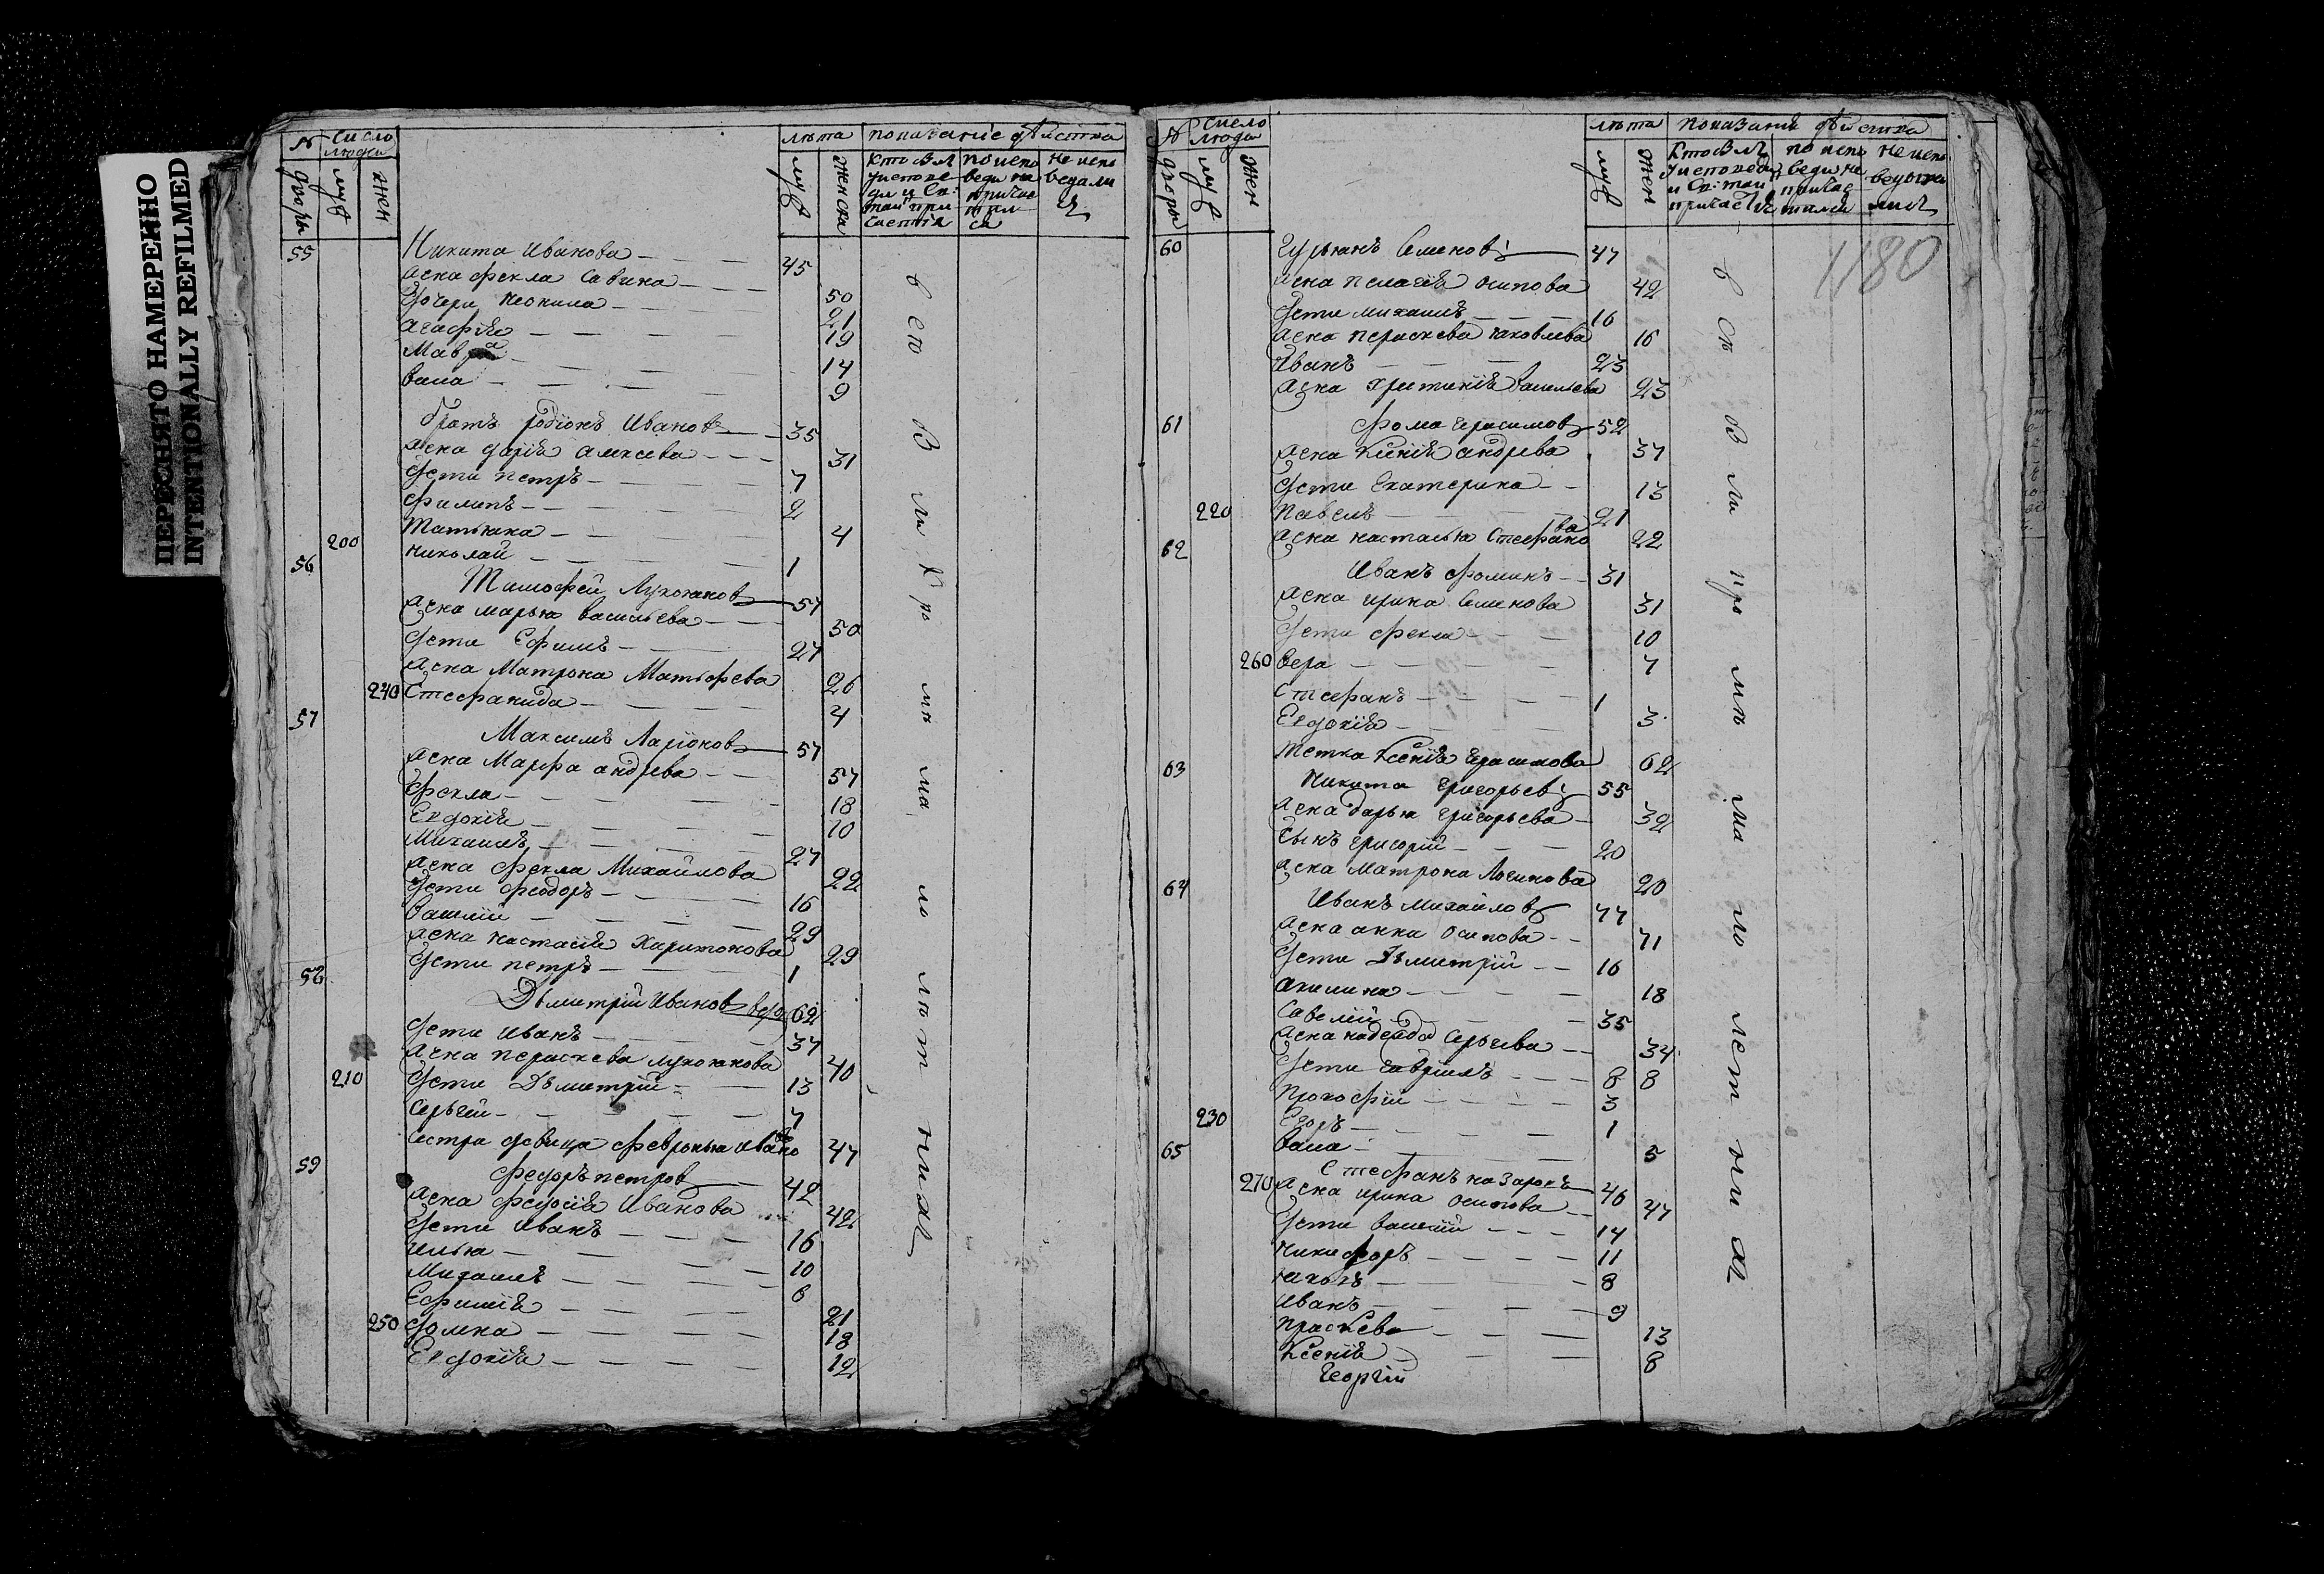 ПЕРЕСНЯТО НАМЕРЕННО
INTENTIONALLY REFILMED
№ число людей лѣта показаніе дѣйства
дворы муж жен муж женска
55 Никита Иванова 45
жена Фекла Савина 50
дочери Неонила 21
Агафія 19
Мавра 14
Васа 9
братъ Родіонъ Иванов 35
жена Дарія Алексева 31
дети Петръ 7
Филипъ 2
Татьяна 4
200 Николай 1
56 Тимофей Лукоянов 57
жена Марья Васильева 50
дети Ефимъ 27
жена Матрона Матьфева 26
240 Стефанида 4
57 Максимъ Ларіонов 57
жена Марфа Андрева 57
Фекла 18
Евдокія 10
Михаилъ 27
жена Фекла Михайлова 22
дети Феодоръ 16
Василій 29
жена Настасія Харитонова 29
дети Петръ 1
58 Дьмитрій Иванов вдов 62
дети Иванъ 37
жена Пераскева Лукоянова 40
210 дети Дьмитрій 13
Серьгей 7
Сестра девица Февронья Иванова 47
59 Федоръ Петров 42
жена Федосія Иванова 42
дети Иванъ 16
Илья 10
Михаилъ 6
Ефимія 21
250 Домна 18
Евдокія 12
всѣ в ли Кро мѣ ма ло лѣт нихъ
№ число люди лѣта показанія дѣйства
дворы муж жен муж жен
1180
60 Гурьянъ Семенов 47
жена Пелагія Осипова 42
дети Михаилъ 16
жена Пераскева Яковлева 16
Иванъ 23
жена Христинія Васильева 23
61 Фома Герасимов 52
жена Ксенія Андрева 37
дети Екатерина 13
220 Павелъ 21
жена Настасья Стефанова 22
62 Иванъ Фоминъ 31
жена Ирина Семенова 31
дети Фекла 10
260 Вера 7
Стефанъ 1
Евдокія 3
тетка Ксенія Герасимова 62
63 Никита Григорьев 55
жена Дарья Григорьева 32
Сынъ Григорій 20
жена Матрона Логинова 20
64 Иванъ Михайлов 77
жена Анна Осипова 71
дети Дьмитрій 16
Акилина 18
Савелій 35
жена Надежда Серьгева 34
дети Гавріилъ 8 8
Прокофій 3
230 Егоръ 1
Васа 5
65 Стефанъ Назаровъ 46
270 жена Ирина Осипова 47
дети Василій 14
Никифоръ 11
Яковъ 8
Иванъ 9
Праскева 13
Ксенія 8
Георгій
всѣ в ли кро мѣ ма ло лет нихъ